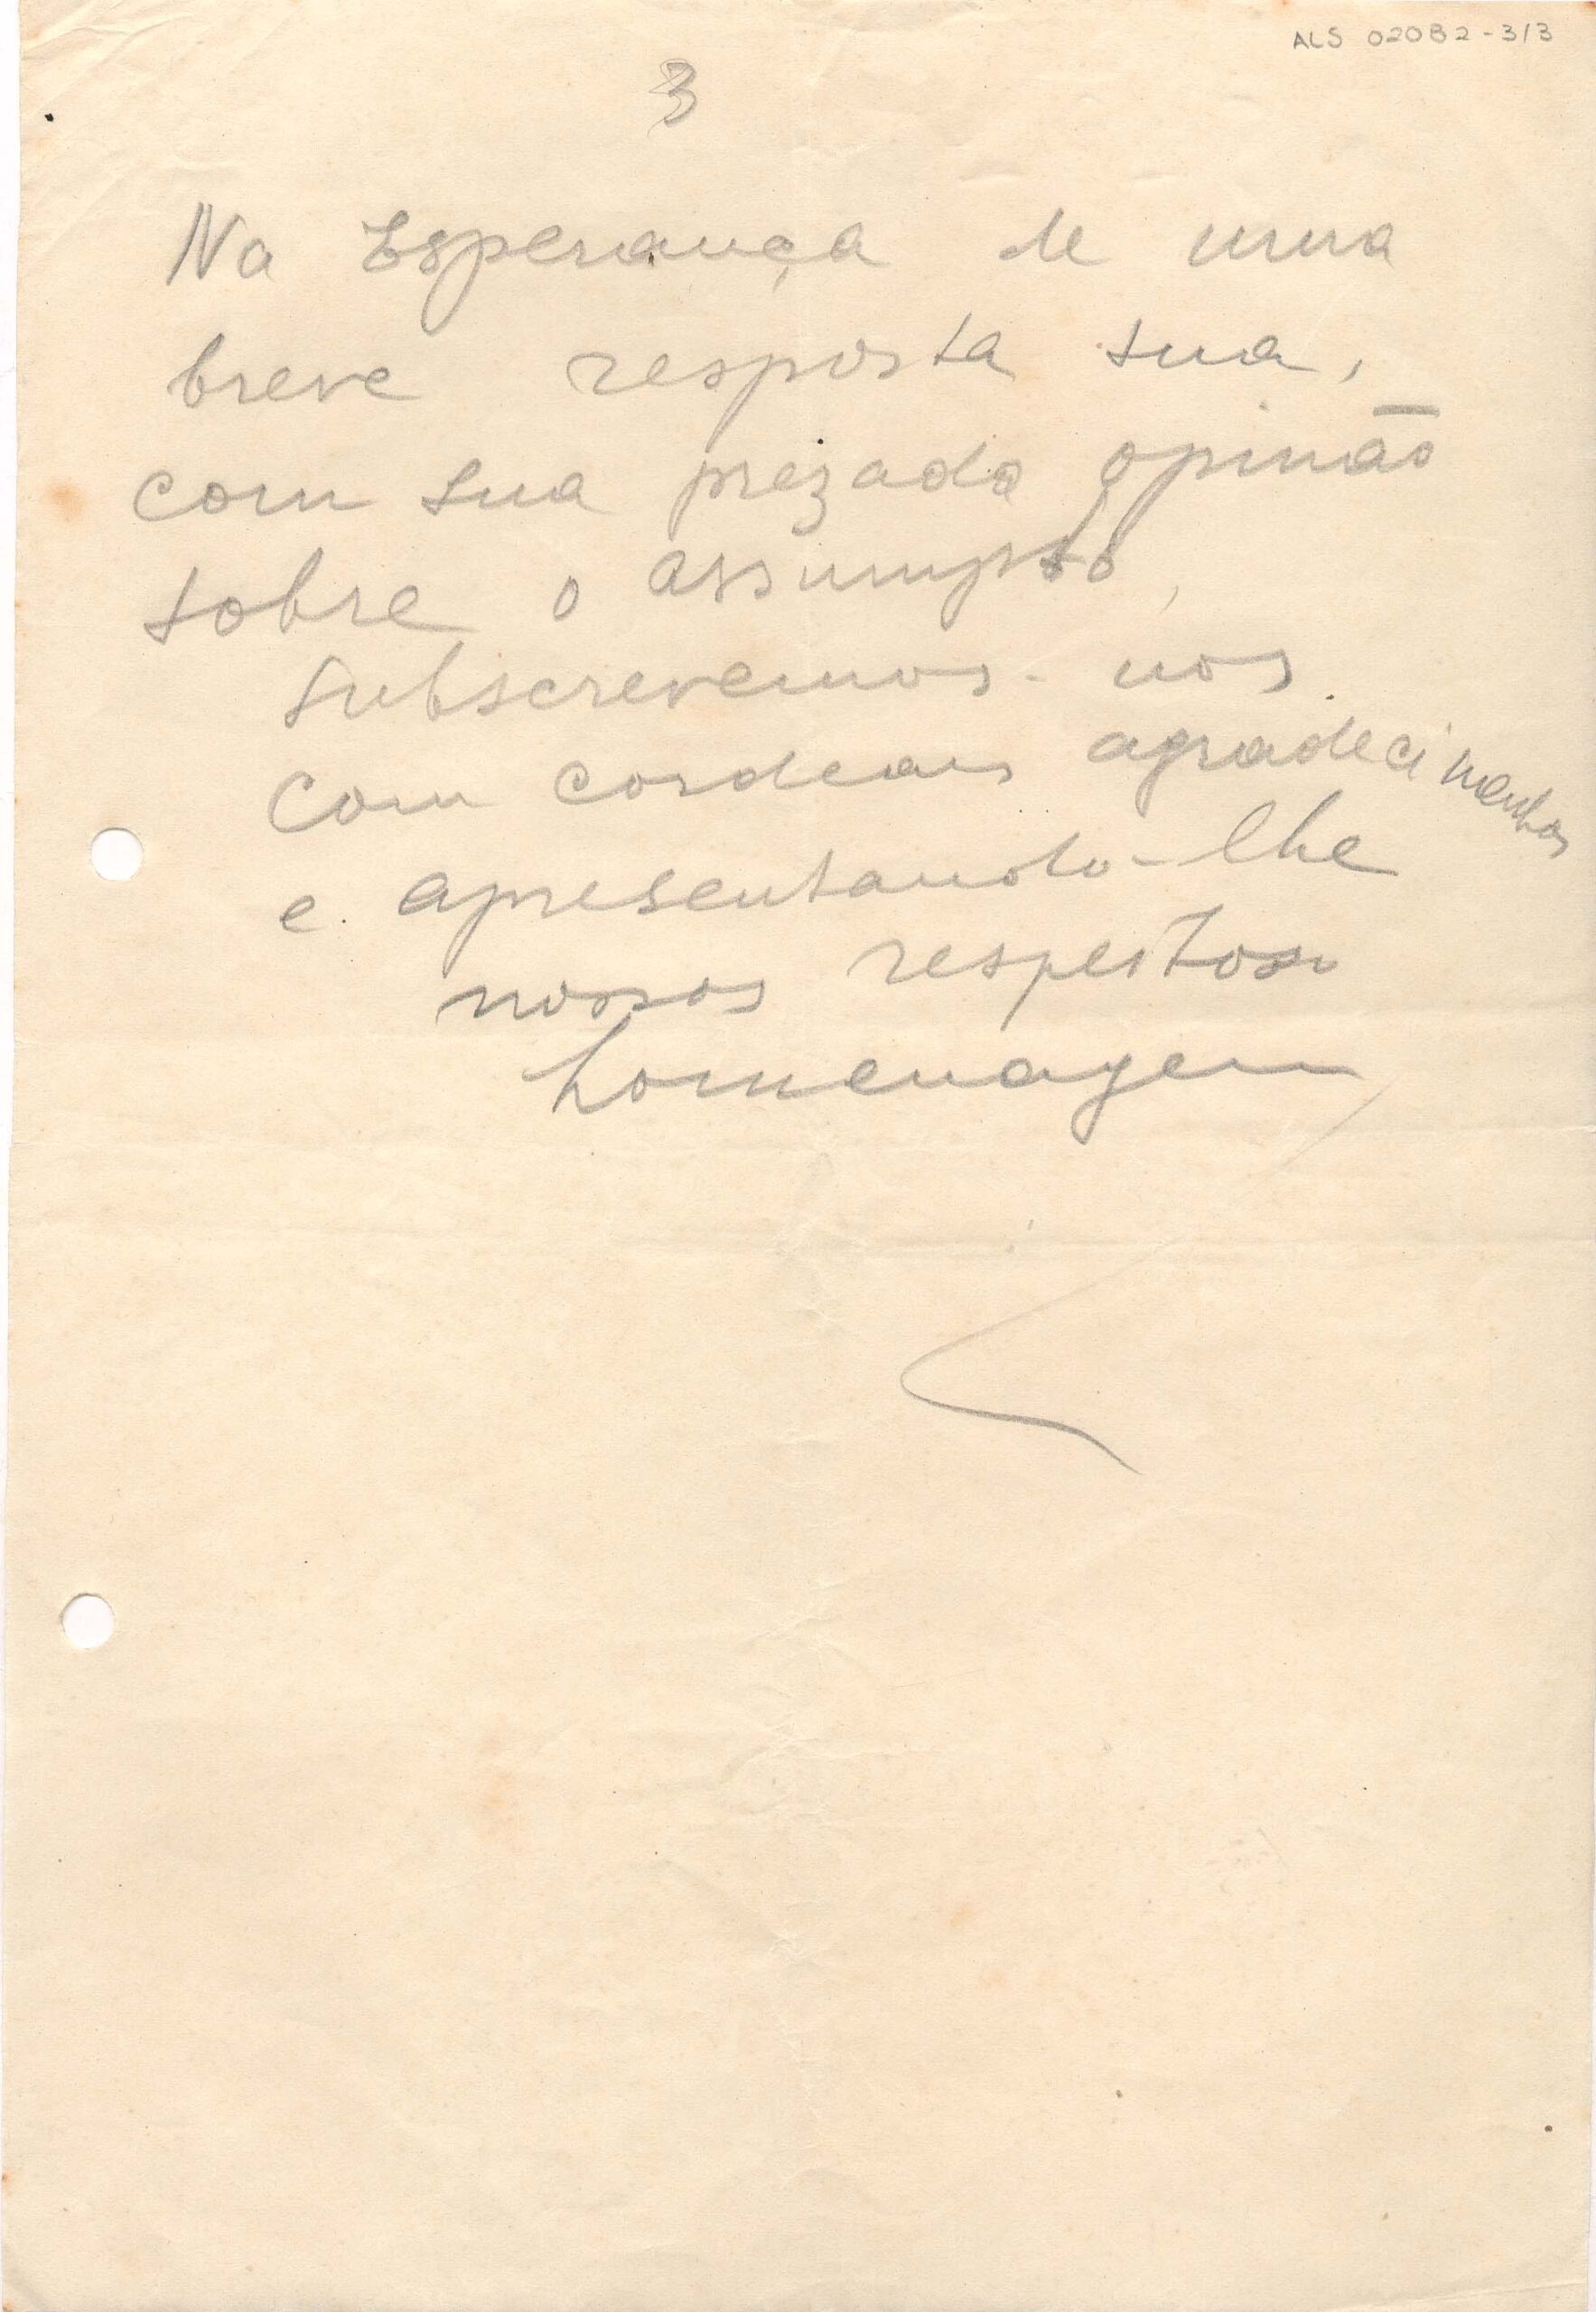 ALS 02082-3/3
3
Na Esperança de uma
breve resposta sua,
com sua prezada opinião
sobre o assumpto,
subscrevemos-nos
com cordeais agradecimentos
e apresentando-lhe
nossos respeitoso
homenagem